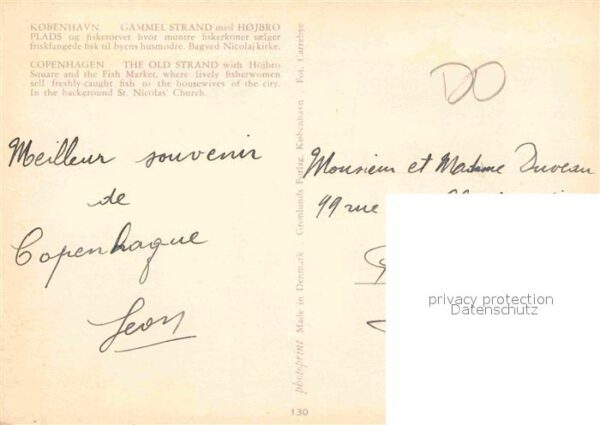 KØBENHAVN. GAMMEL STRAND med HØJBRO
PLADS og fisketorvet hvor montre fiskerkoner sælger
friskfangede fisk til byens husmødre. Bagved Nicolaj kirke.
COPENHAGEN THE OLD STRAND with Höjbro
Square and the Fish Market, where lively fisherwomen
sell freshly-caught fish to the housewives of the city.
In the background St. Nicolas' Church.
DO
Meilleur souvenir
de
Copenhague
Leon
Monsieur et Madame Duveau
99 rue
privacy protection
Datenschutz
photoprint Made in Denmark Grønlunds Forlag, København Fot.
130